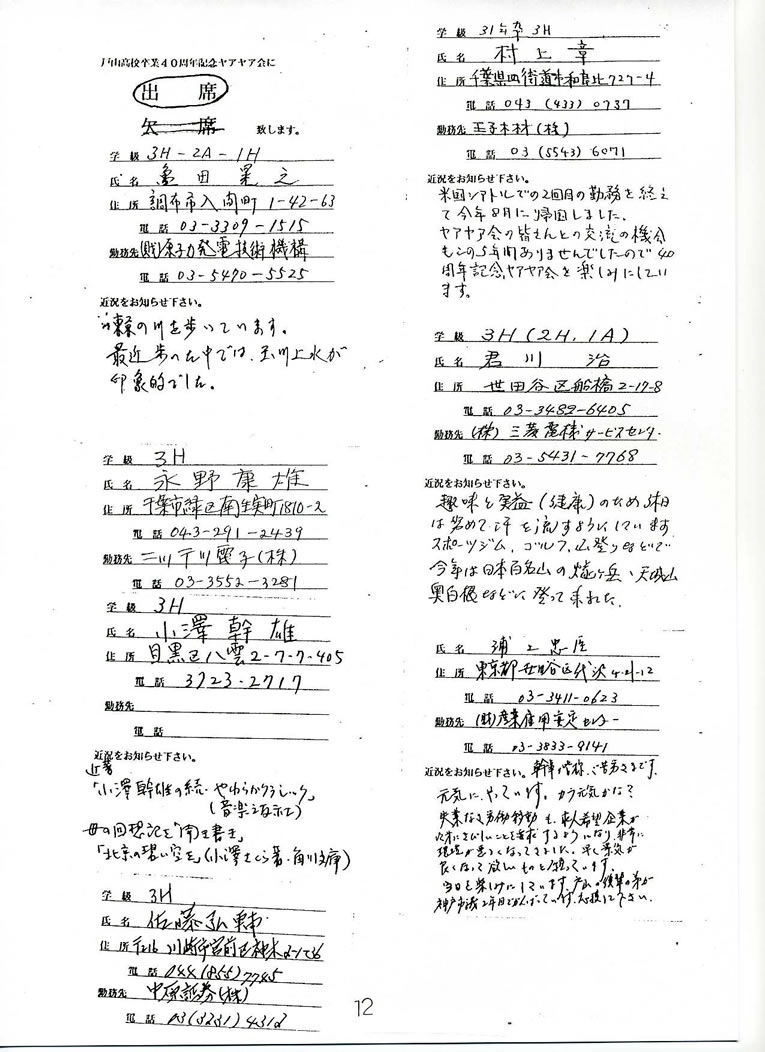 戸山高校卒業40周年記念ヤアヤア会に
出席
欠席 致します。
学級 3H-2A-1H
氏名 亀田
住所 調布市入間町 1-42-63
電話 03-3309-1515
勤務先 (財)原子力発電技術機構
電話 03-5470-5525
近況をお知らせ下さい。
の川を歩いています。
最近歩いた中では、玉川上水が
印象的でした。
学級 3H
氏名 永野康雄
住所 千葉市緑区南生実町1810-2
電話 043-291-2439
勤務先 電子(株)
電話 03-3552-3281
学級 3H
氏名 小澤幹雄
住所 目黒区八雲2-7-7-405
電話 3723-2717
勤務先
電話
近況をお知らせ下さい。
近著
「小澤幹雄の続・やわらかクラシック」
(音楽之友社)
母の回想記を聞き書き
「北京の碧い空を」(小澤さくら著・角川文庫)
学級 3H
氏名 佐藤弘
住所 〒216 川崎市宮前区神木
電話 044(855)7745
勤務先 中原証券(株)
電話 03(3231)4312
12
学級 31年卒 3H
氏名 村上章
住所 千葉県四街道市和良比727-4
電話 043(433)0737
勤務先 王子木材(株)
電話 03(5543)6071
近況をお知らせ下さい。
米国シアトルでの2回目の勤務を終え
て今年8月に帰国しました。
ヤアヤア会の皆さんとの交流の機会
もこの5年間ありませんでしたので40
周年記念ヤアヤア会を楽しみにしてい
ます。
学級 3H(2H,1A)
氏名 君川 治
住所 世田谷区船橋2-17-8
電話 03-3482-6405
勤務先 (株)三菱電機サービスセンター
電話 03-5431-7768
近況をお知らせ下さい。
趣味と実益(健康)のため休日
は努めて汗を流すようにしています
スポーツジム、ゴルフ、山登りなどで
今年は日本百名山の焼ヶ岳、天城山
奥白根などに登って来れた.
氏名 浦上忠
住所 東京都世田谷区代沢4-21-12
電話 03-3411-0623
勤務先 (財)産業雇用安定センター
電話 03-3833-9141
近況をお知らせ下さい。幹事の皆様、ご苦労さまです。
元気にやっています。
失業なき労働移動も、求人希望企業が
次第にきびしいことを要求するようになり、非常に
環境が悪くなってきました。早く景気が
良くなって欲しいものと願っています。
当日を楽しみにしています。戸山の後輩の弟が
神戸市議2年目でがんばっています。応援して下さい。